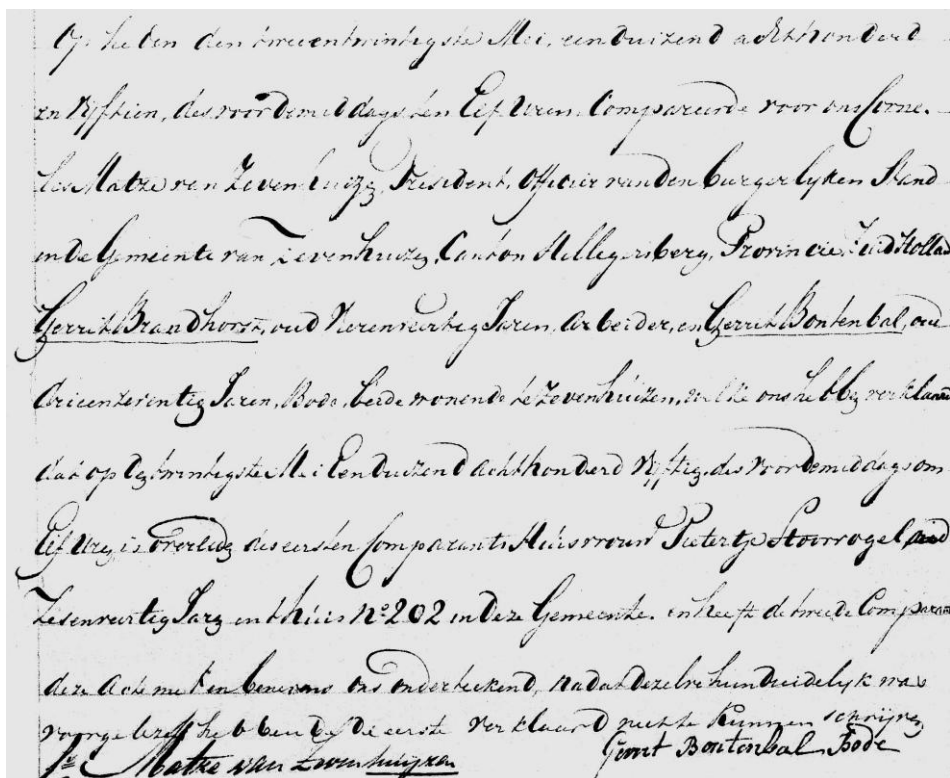 Op heden den tweentwintigste Mei, eenduizend achthonderd
en Vyftien, des voordemiddags ten Elf Uren, Compareerde voor ons Corne-
les Matze van Zevenhuizen, President, Officier van den burgerlyken Stand
in de Gemeente van Zevenhuizen, Canton Hillegersberg, Provincie Zuid Holland
Gerrit Brandhorst, oud Vierenveertig Jaren, Arbeider, en Gerrit Bontenbal, oud
drieenzeventig Jaren, Bode, beide wonende te Zevenhuizen, welke ons hebben verklaard
dat op den twintigste Mei Eenduizend Achthonderd Vyftien des voordemiddags om
Elf Uren is overleden des eersten Comparants Huisvrouw Pietertje Stoorvogel, oud
Zesenveertig Jaren in t huis No 202 in deze Gemeente. en heeft de tweede Comparant
deze Acte met en benevens ons onderteekend, nadat dezelve hun duidelyk was
voorgelezen hebbende de eerste verklaard niet te kunnen schrijven
Matze van Zevenhuyzen Gerrit Bontenbal Bode